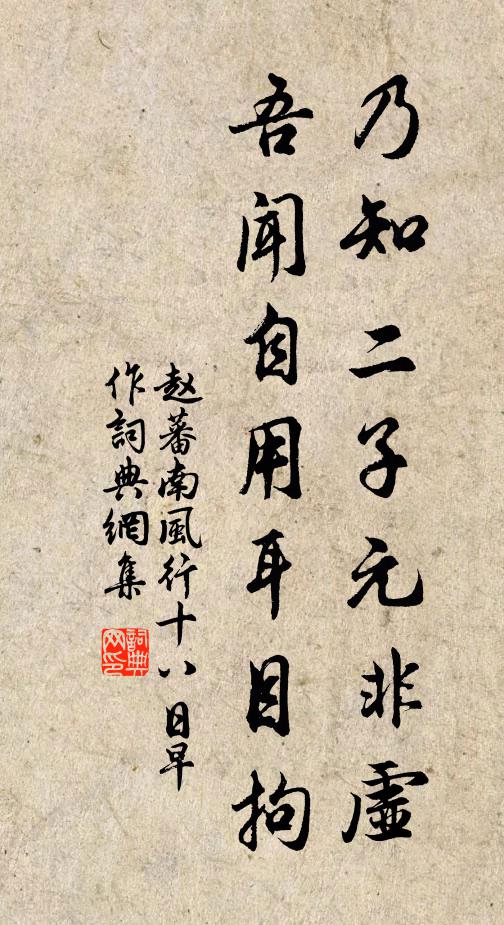 乃知二子元非虛
吾聞自用耳目拘
赵蕃南風行十八日早
作詞典網集
詞典网印